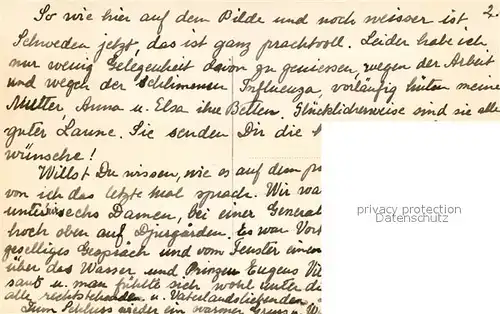 So wie hier auf dem Bilde und noch weisser ist 2.
Schweden jetzt, das ist ganz prachtvoll. Leider habe ich
nur wenig Gelegenheit davon zu geniessen, wegen der Arbeit
und wegen der schlimmen Influenza, vorläufig hüten meine
Mutter, Anna u. Elsa ihre Betten. Glücklicherweise sind sie alle
guter Laune. Sie senden Dir die
wünsche!
Willst Du wissen, wie es auf dem
von ich das letzte Mal sprach. Wir
unter sechs Damen, bei einer General
hoch oben auf Djurgården. Es war
geselliges Gespräch und vom Fenster einen
über das Wasser und Prinzen Eugens
sant u. man fühlte sich wohl unter
alle rechtstehenden u. Vaterlandsliebenden
Zum Schluss wieder ein warmer Gruss u.
privacy protecting
Datenschutz